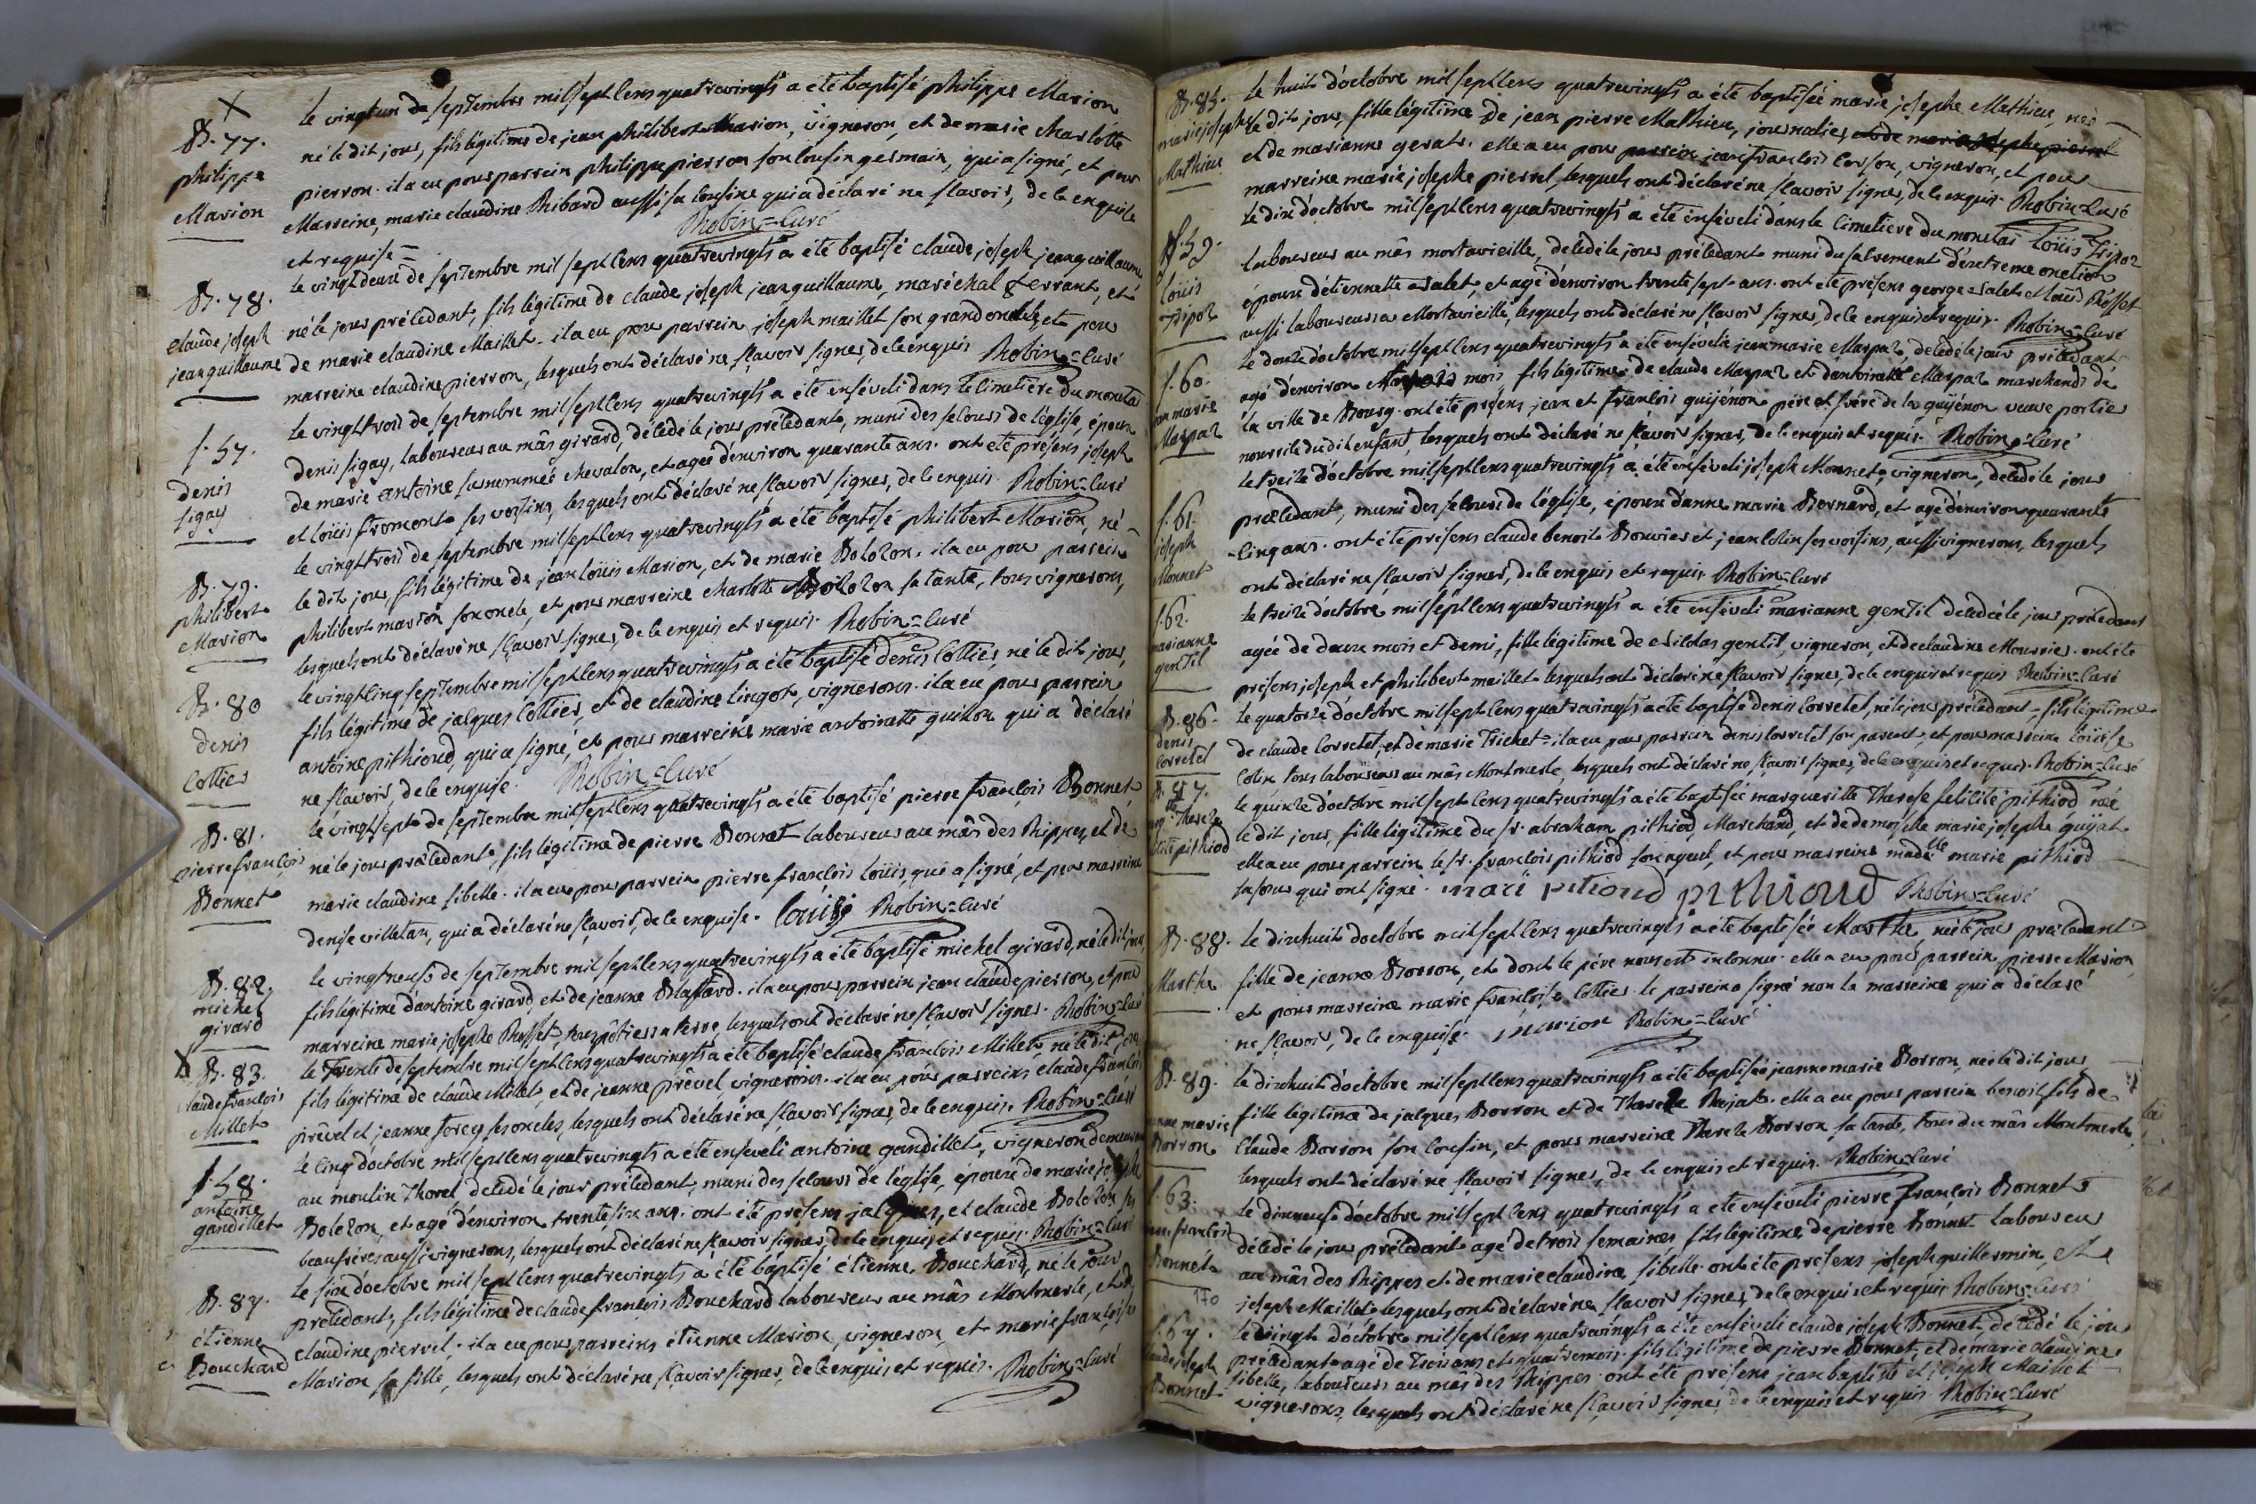 B. 77.
philippe
Marion
le vingtun de septembre mil sept cens quatrevingts a été baptisé philippe Marion
né le dit jour, fils légitime de jean philibert Marion, vigneron, et de marie charlotte
pierron. il a eu pour parrein philippe pierron son cousin germain, qui a signé, et pour
Marreine, marie claudine Ribard aussi sa cousine qui a déclaré ne sçavoir, de ce enquise
et requise = Robin=Curé
B. 78.
claude joseph
jeanguillaume
le vingtdeux de septembre mil sept cens quatrevingts a été baptisé claude joseph jeanguillaume
né le jour précédant, fils légitime de claude joseph jeanguillaume, maréchal ferrant, et
de marie claudine Maillet. il a eu pour parrein joseph maillet son grand oncle, et pour
marreine claudine pierron, lesquels ont déclaré ne sçavoir signer, de ce enquis Robin=Curé
f. 57.
denis
sigay
le vingttrois de septembre mil sept cens quatrevingts a été enséveli dans le cimetière du moneta
denis sigay, laboureur au mâs girard, décédé le jour précédant, muni des secours de l'église, époux
de marie antoine surnommée chevalon, et agé d'environ quarante ans. ont été présens joseph
et loüis fromont ses voisins, lesquels ont déclaré ne sçavoir signer, de ce enquis Robin=Curé
B. 79.
philibert
Marion
le vingttrois de septembre mil sept cens quatrevingts a été baptisé philibert Marion, né
le dit jour, fils légitime de jean loüis Marion, et de marie Bolozon. il a eu pour parrein
philibert marion son oncle, et pour marreine charlotte Bolozon sa tante, tous vignerons,
lesquels ont déclaré ne sçavoir signer, de ce enquis et requis. Robin=Curé
B. 80
denis
Cottier
le vingtcinq septembre mil sept cens quatrevingts a été baptisé denis Cottier, né le dit jour,
fils légitime de jacques Cottier, et de claudine lingot, vignerons. il a eu pour parrein
antoine pithioud, qui a signé, et pour marreine marie antoinette guillon qui a déclaré
ne sçavoir, de ce enquise. Robin=Curé
B. 81.
pierre françois
Bonnet
le vingtsept de septembre mil sept cens quatrevingts a été baptisé pierre françois Bonnet
né le jour précédant, fils légitime de pierre Bonnet laboureur au mâs des Rippes, et de
marie claudine sibelle. il a eu pour parrein pierre françois loüis, qui a signé, et pour marreine
denise villetan, qui a déclaré ne sçavoir, de ce enquise. Robin=Curé
B. 82.
michel
girard
le vingtneuf de septembre mil sept cens quatrevingts a été baptisé michel girard, né le dit jour,
fils légitime d'antoine girard et de jeanne Blassard. il a eu pour parrein jean claude pierron, et pour
marreine marie josephe Russet, tous pôtiers en terre, lesquels ont déclaré ne sçavoir signer. Robin=Curé
B. 83.
claude françois
Millet
le trente de septembre mil sept cens quatrevingts a été baptisé claude françois Millet, né le dit jour
fils légitime de claude Millet, et de jeanne prêvel vignerons. il a eu pour parreins claude françois
prêvel et jeanne forey ses oncles, lesquels ont déclaré ne sçavoir signer, de ce enquis. Robin=Curé
f. 58.
antoine
gandillet
le cinq d'octobre mil sept cens quatrevingts a été enséveli antoine gandillet, vigneron demeurant
au moulin Thorel, décédé le jour précédant, muni des secours de l'église, époux de marie josephe
Bolozon, et agé d'environ trentesix ans. ont été présens jacques, et claude Bolozon ses
beaufrères aussi vignerons, lesquels ont déclaré ne sçavoir signer, de ce enquis et requis. Robin=Curé
B. 84.
étienne
Bouchard
le six d'octobre mil sept cens quatrevingts a été baptisé étienne Bouchard, né le jour
précédant, fils légitime de claude françois Bouchard laboureur au mâs Montmerle, et de
claudine pierrel. il a eu pour parreins étienne Marion, vigneron, et marie françoise
Marion sa fille, lesquels ont déclaré ne sçavoir signer, de ce enquis et requis. Robin=Curé
B. 85.
marie josephe
Mathieu
le huit d'octobre mil sept cens quatrevingts a été baptisée marie josephe Mathieu, née
le dit jour, fille légitime de jean pierre Mathieu, journalier, et de marie josephe pierrel
et de marianne gerat. elle a eu pour parrein jean françois corson, vigneron, et pour
marreine marie josephe pierrel, lesquels ont déclaré ne sçavoir signer, de ce enquis. Robin=Curé
f. 59.
loüis
Tripoz
le dix d'octobre mil sept cens quatrevingts a été enséveli dans le cimetière du monetai loüis Tripoz
laboureur au mâs mortavieille, décédé le jour précédant muni du sacrement d'extreme onction
époux d'étiennette Salet, et agé d'environ trente sept ans. ont été présens george Salet et loüis Rosset
aussi laboureurs a Mortavieille, lesquels ont déclaré ne sçavoir signer, de ce enquis et requis. Robin=Curé
f. 60.
jean marie
Maspaz
le douze d'octobre mil sept cens quatrevingts a été enséveli jean marie Maspaz, décédé le jour précédant
agé d'environ trois mois, fils légitime de claude Maspaz et d'antoinette Maspaz marchands de
la ville de Bourg. ont été présens jean et françois guijénon père et frère de la guijénon veuve portier
nourrice du dit enfant, lesquels ont déclaré ne sçavoir signer, de ce enquis et requis. Robin=Curé
f. 61.
joseph
Monnet
le treize d'octobre mil sept cens quatrevingts a été enséveli joseph Monnet, vigneron, décédé le jour
précédant, muni des secours de l'église, époux d'anne marie Bernard, et agé d'environ quarante
-cinq ans. ont été présens claude benoit Bouvier et jean Colin ses voisins, aussi vignerons, lesquels
ont déclaré ne sçavoir signer, de ce enquis et requis Robin=Curé
f. 62.
marianne
gentil
le treize d'octobre mil sept cens quatrevingts a été enséveli marianne gentil décédée le jour précédant
agée de douze mois et demi, fille légitime de Nicolas gentil, vigneron, et de claudine Mourrier. ont été
présens joseph et philibert maillet lesquels ont déclaré ne sçavoir signer, de ce enquis et requis Robin=Curé
B. 86.
denis
Corretel
le quatorze d'octobre mil sept cens quatrevingts a été baptisé denis Corretel, né le jour précédant, fils légitime
de claude Corretel, et de marie Trichet. il a eu pour parrein denis corretel son parent, et pour marreine loüise
Colin tous laboureurs au mâs Montmerle, lesquels ont déclaré ne sçavoir signer, de ce enquis et requis. Robin=Curé
B. 87.
Therese
félicité pithiod
le quinze d'octobre mil sept cens quatrevingts a été baptisée marguerite Therese félicité pithiod née
le dit jour, fille légitime du sr. abraham pithiod Marchand, et de demoiselle marie josephe guyat
elle a eu pour parrein le sr. françois pithiod son ayeul, et pour marreine madelle marie pithiod
sa soeur qui ont signé. marii pitioud pithioud Robin=Curé
B. 88.
Marthe
le dixhuit d'octobre mil sept cens quatrevingts a été baptisée Marthe, née le jour précédant
fille de jeanne Borron, et dont le père nous est inconnu. elle a eu pour parrein pierre Marion
et pour marreine marie françoise Cottier. le parrein a signé non la marreine qui a déclaré
ne sçavoir, de ce enquise. marion Robin=Curé
B. 89.
jeanne marie
Borron
le dixhuit d'octobre mil sept cens quatrevingts a été baptisée jeanne marie Borron, née le dit jour
fille légitime de jacques Borron et de Therese Rojat. elle a eu pour parrein benoit fils de
Claude Borron son Cousin, et pour marreine Therese Borron sa tante, tous du mâs Montmerle
lesquels ont déclaré ne sçavoir signer, de ce enquis et requis. Robin=Curé
f. 63.
françois
Bonnet
170
le dixneuf d'octobre mil sept cens quatrevingts a été enséveli pierre françois Bonnet
décédé le jour précédant agé de trois semaines fils légitime de pierre Bonnet laboureur
au mâs des Rippes et de marie claudine sibelle. ont été présens joseph guillermin, et
joseph Maillet, lesquels ont déclaré ne sçavoir signer, de ce enquis et requis Robin=Curé
f. 64.
claude joseph
Bonnet
le vingt d'octobre mil sept cens quatrevingts a été enséveli claude joseph Bonnet, décédé le jour
précédant agé de Trois ans et quatre mois. fils légitime de pierre Bonnet, et de marie claudine
sibelle, laboureurs au mâs des Rippes. ont été présens jean baptiste et joseph Maillet
vignerons, lesquels ont déclaré ne sçavoir signer, de ce enquis et requis. Robin=Curé